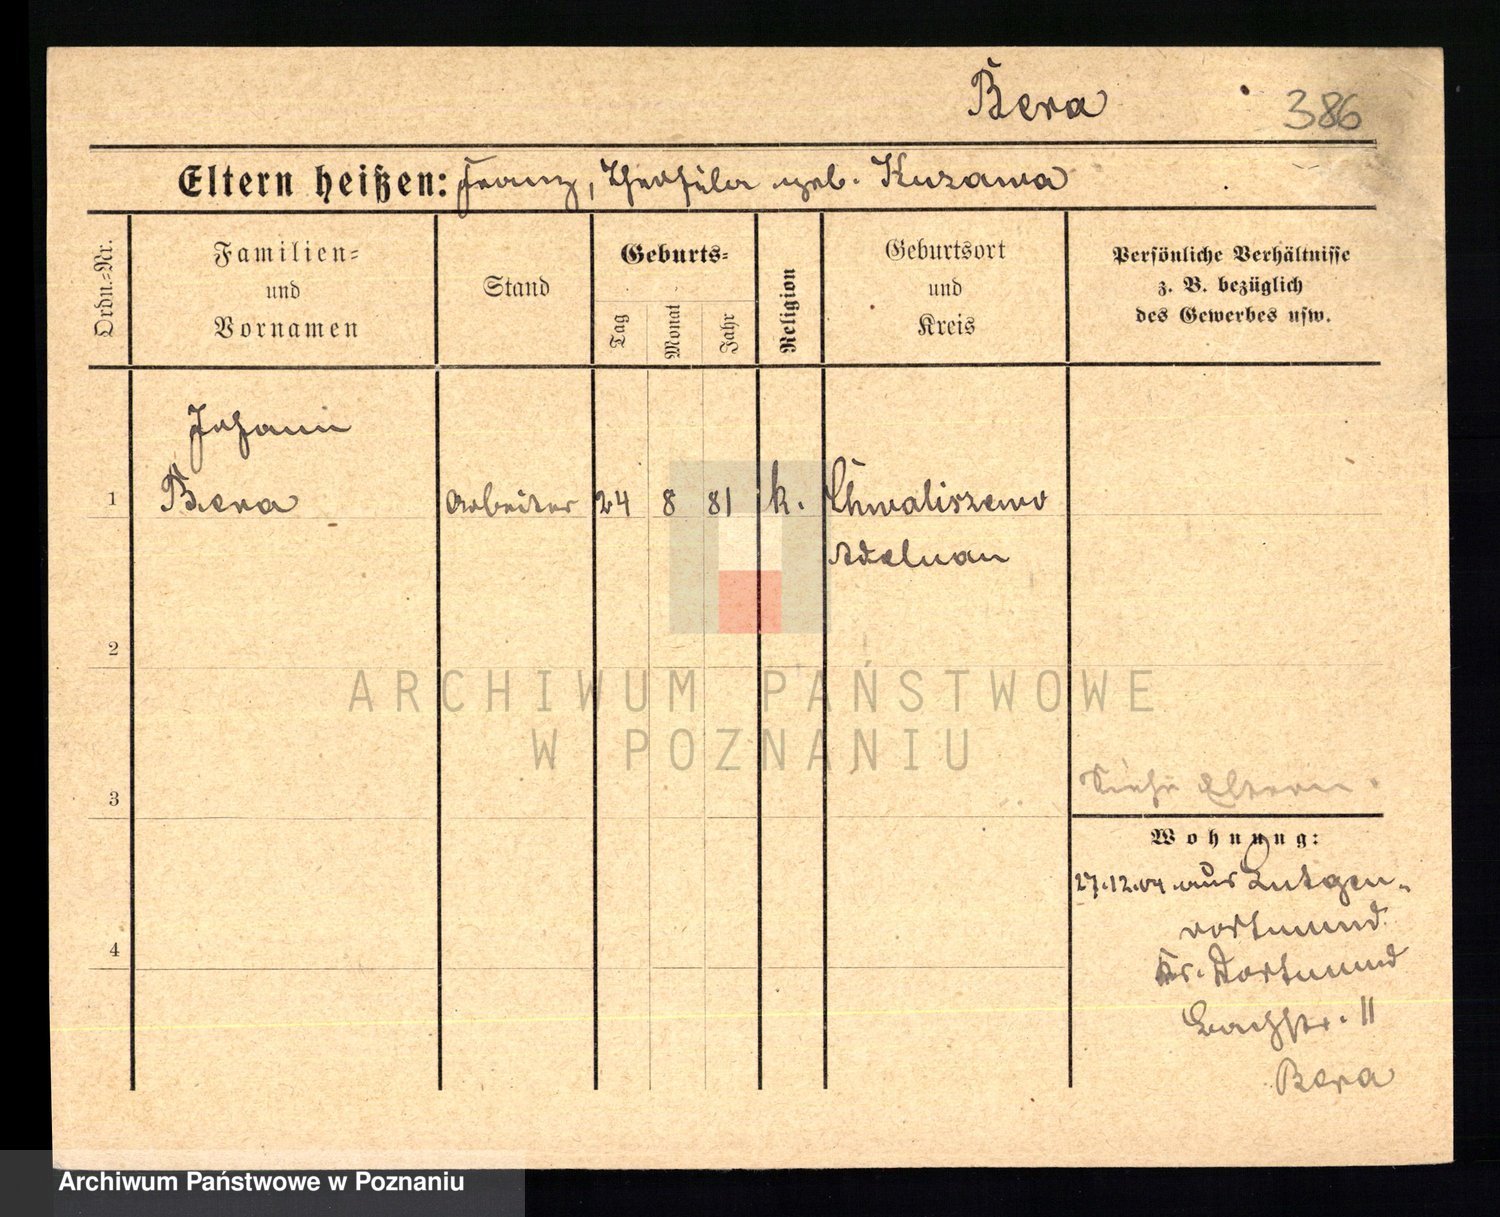 Bera
386
Eltern heißen: Franz, geb. Kuzawa
Ordn.-Nr.
Familien- und Vornamen
Stand
Geburts-
Tag
Monat
Jahr
Religion
Geburtsort und Kreis
Persönliche Verhältnisse
z. B. bezüglich
des Gewerbes usw.
Johann
1 Bera Arbeiter 24 8 81 k. Chwaliszewo
Adelnau
2
ARCHIWUM PAŃSTWOWE
W POZNANIU
3
Siehe Eltern.
Wohnung:
27.12.04 aus Lütgen-
dortmund
4
Kr. Dortmund
Bachstr. 11
Bera
Archiwum Państwowe w Poznaniu